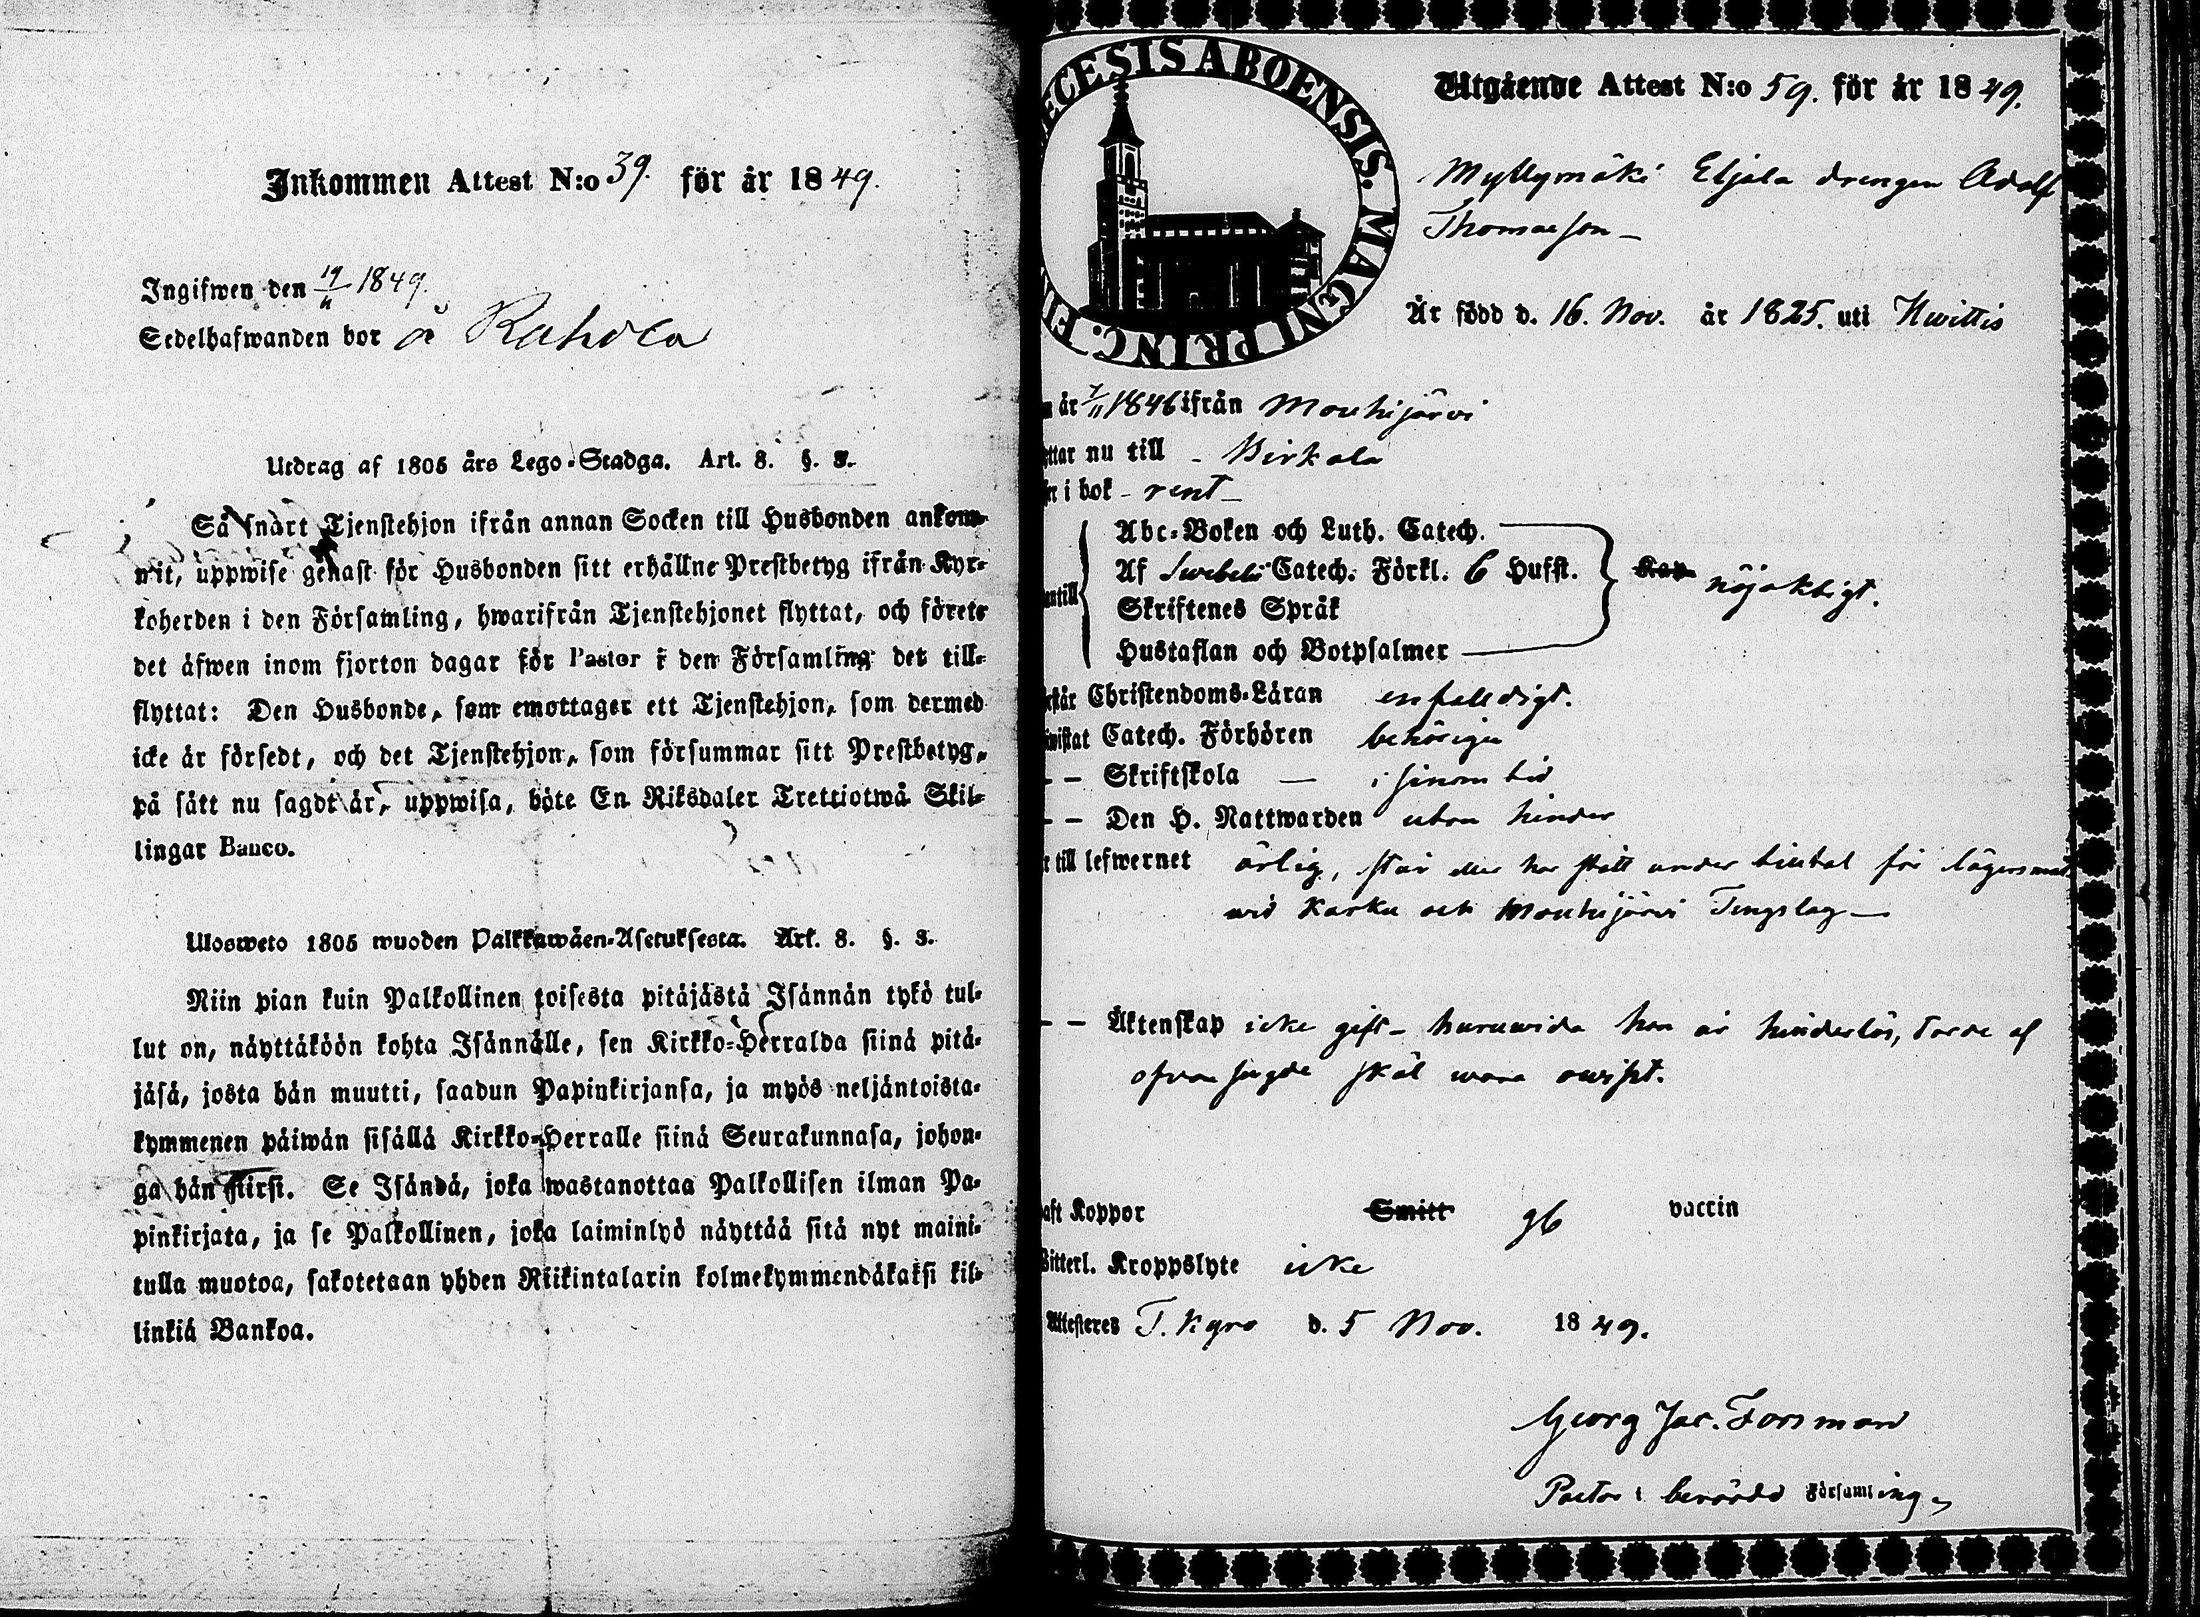 Inkommen Attest N:o 39. för år 1849.
Ingifwen den 19/11 1849.
Sedelhafwanden bor å Rahola
Utdrag af 1805 års Lego-Stadga. Art. 8. §. 3.
Så snart Tjenstehjon ifrån annan Socken till Husbonden ankom-
mit, uppwise genast för Husbonden sitt erhållne Prestbetyg ifrån Kyr-
koherden i den Församling, hwarifrån Tjenstehjonet flyttat, och förete
det äfwen inom fjorton dagar för Pastor i den Församling det till-
flyttat: Den Husbonde, som emottager ett Tjenstehjon, som dermed
icke är försedt, och det Tjenstehjon, som försummar sitt Prestbetyg,
på sätt nu sagdt är, uppwisa, böte En Riksdaler Trettiotwå Skil-
lingar Banco.
Ulosweto 1805 wuoden Palkkawäen-Asetuksesta. Art. 8. §. 3.
Niin pian kuin Palkollinen toisesta pitäjästä Isännän tykö tul-
lut on, näyttäköön kohta Isännälle, sen Kirkko-Herralda siinä pitä-
jäsä, josta hän muutti, saadun Papinkirjansa, ja myös neljäntoista-
kymmenen päiwän sisällä Kirkko-Herralle siinä Seurakunnasa, johon-
ga hän siirsi. Se Isändä, joka wastanottaa Palkollisen ilman Pa-
pinkirjata, ja se Palkollinen, joka laiminlyö näyttää sitä nyt maini-
tulla muotoa, sakotetaan yhden Riikintalarin kolmekymmendäkaksi kil-
linkiä Bankoa.
ECESIS ABOENSIS. MAGNI PRINC. FI
Utgående Attest N:o 59. för år 1849.
Myllymäki Eljala drengen Adolf
Thomasson
Är född d. 16. Nov. år 1825. uti Hwittis
år 7/11 1846 ifrån Mouhijärvi
ttar nu till Birkala
n i bok rent
Abc-Boken och Luth. Catech.
Af Swebelii Catech. Förkl. 6 Hufst. nöjaktigt.
Skriftenes Språk
Hustaflan och Botpsalmer
står Christendoms-Läran enfalldigt.
wistat Catech. Förhören behörigen
– – Skriftskola — i sinom tid
– – Den H. Nattwarden utan hinder
r till lefwernet ärlig, står eller har stått under tilltal för lägersmål
wid Karku och Mouhijärvi Tingslag
– – Äktenskap icke gift – huruwida han är hinderlös, torde af
ofvansagde skäl wara owisst.
aft Koppor Smitt gb vaccin
Witterl. Kroppslyte icke
Attesteres T. Kyro d. 5 Nov. 1849.
Georg Jac. Forsman
Pastor i berörde Församling